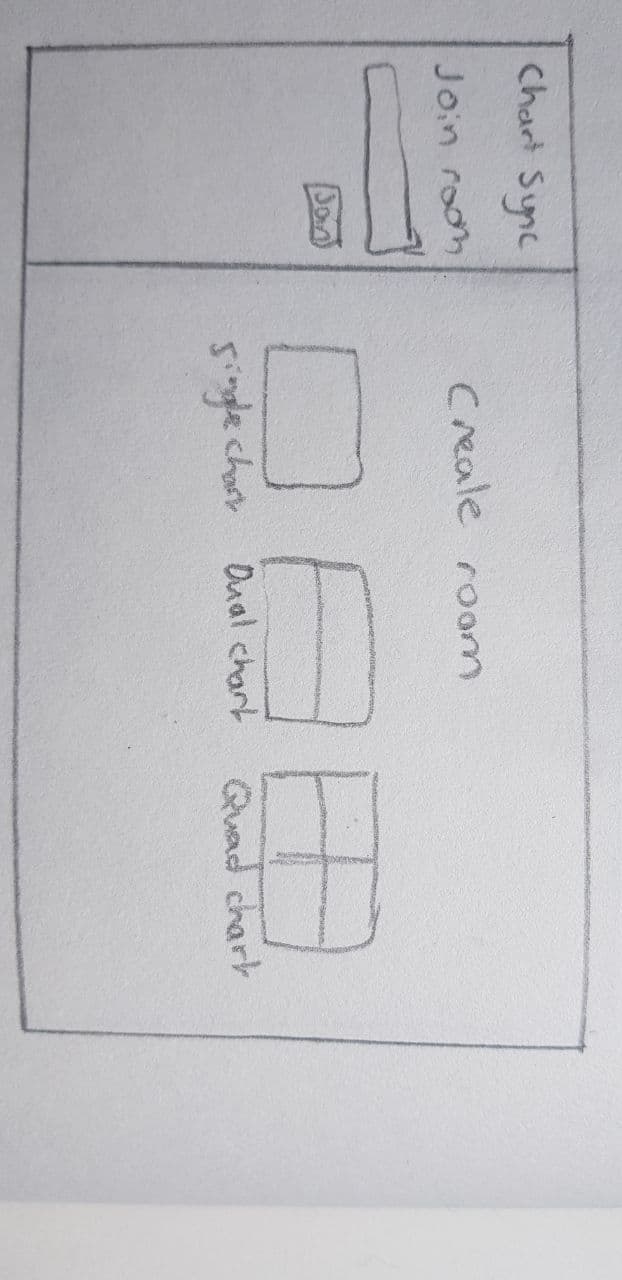 Chart Sync
Join room
Join
Create room
Single chart
Dual chart
Quad chart